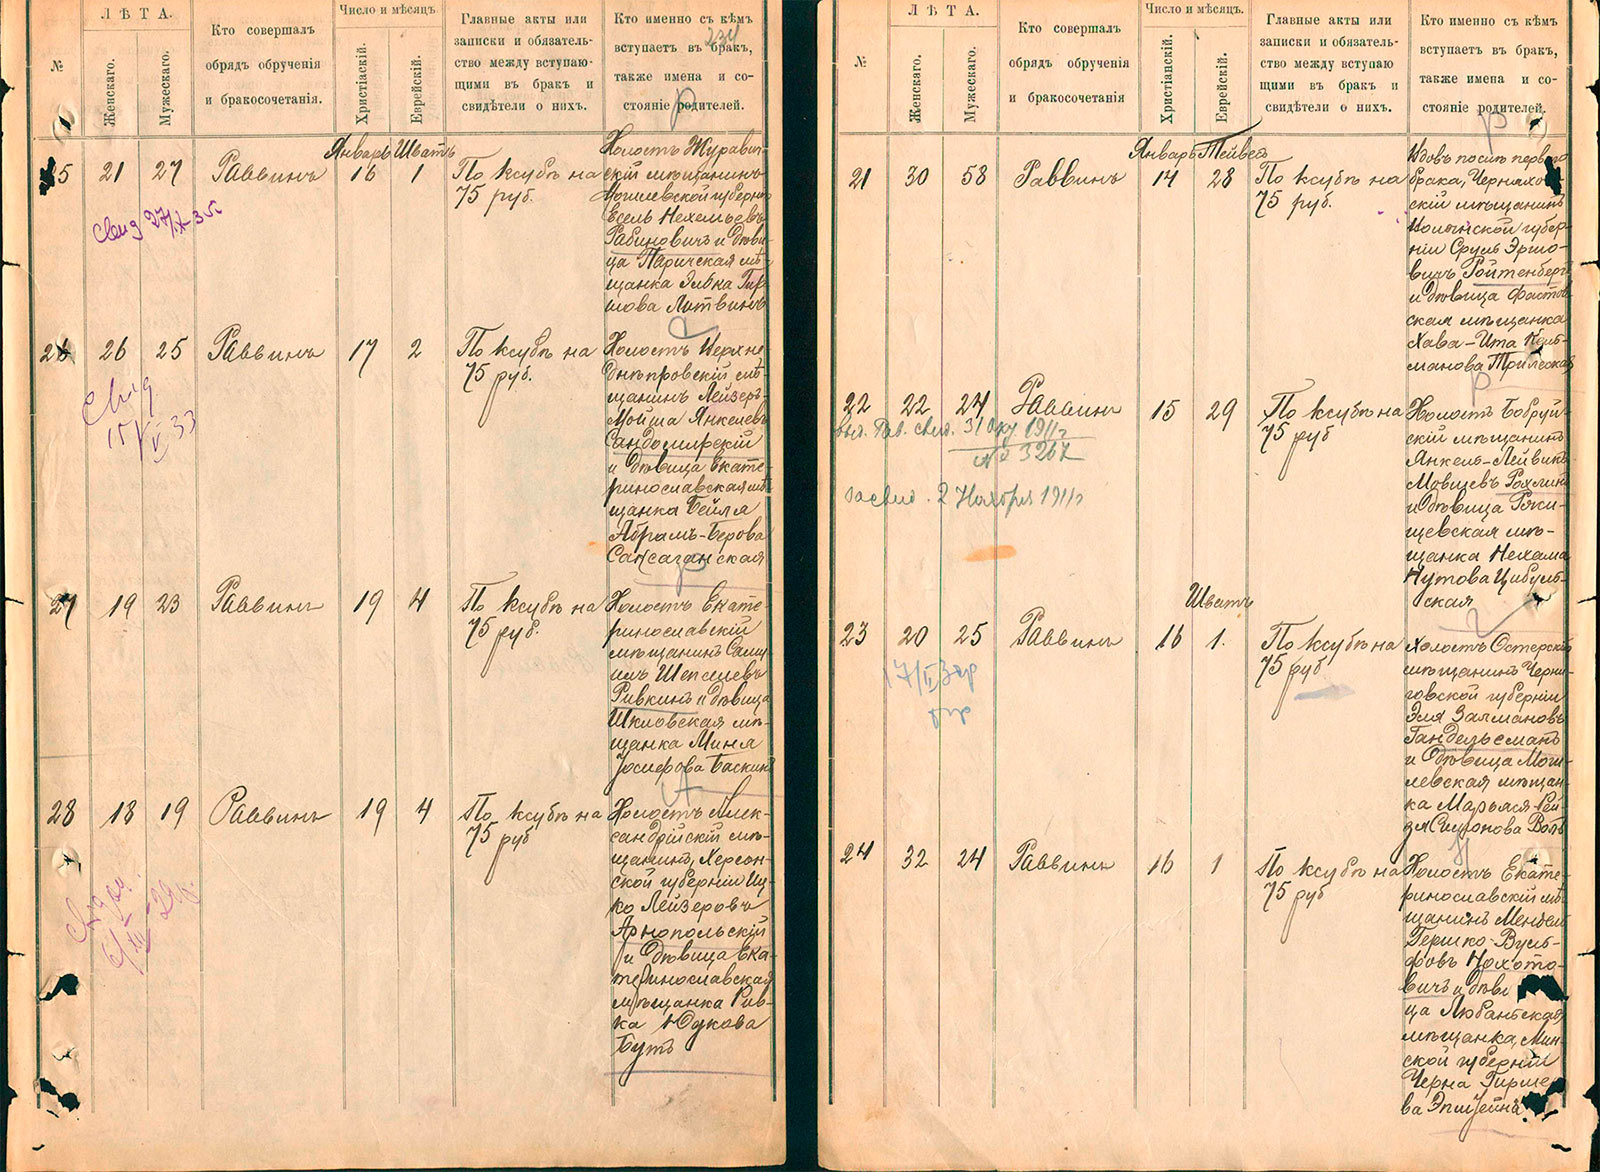 ЛѢТА.
Число и мѣсяцъ.
№
Женскаго.
Мужескаго.
Кто совершалъ
обрядъ обрученія
и бракосочетанія.
Христіаскій.
Еврейскій.
Главные акты или
записки и обязатель-
ство между вступаю-
щими въ бракъ и
свидѣтели о нихъ.
Кто именно съ кѣмъ
вступаетъ въ бракъ,
также имена и со-
стояніе родителей.
234
Январь Шватъ
25 21 27 Раввинъ 16 1
По ксубѣ на
75 руб.
Холостъ Журавич-
скій мѣщанинъ
Могилевской губерніи
Евсель Нехемьевъ
Рабиновичъ и дѣви-
ца Паричская мѣ-
щанка Эльна Гир-
шова Литвинъ
26 26 25 Раввинъ 17 2
По ксубѣ на
75 руб.
Холостъ Верхне-
днѣпровскій мѣ-
щанинъ Лейзеръ-
Мойша Янкелевъ
Сандомирскій
и дѣвица Екате-
ринославская мѣ-
щанка Бейля
Абрамъ-Берова
Саксаганская
27 19 23 Раввинъ 19 4
По ксубѣ на
75 руб.
Холостъ Екате-
ринославскій
мѣщанинъ Саму-
илъ Шепшлевъ
Ривкинъ и дѣвица
Шкловская мѣ-
щанка Миня
Іосифова Баскинъ
28 18 19 Раввинъ 19 4
По ксубѣ на
75 руб
Холостъ Алек-
сандрійскій мѣ-
щанинъ, Херсон-
ской губерніи Иц-
ко Лейзеровъ
Арнопольскій
и дѣвица Ека-
теринославская
мѣщанка Рив-
ка Юдкова
Бутъ
ЛѢТА.
Число и мѣсяцъ.
№
Женскаго.
Мужескаго.
Кто совершалъ
обрядъ обрученія
и бракосочетанія
Христіанскій.
Еврейскій.
Главные акты или
записки и обязатель-
ство между вступаю
щими въ бракъ и
свидѣтели о нихъ.
Кто именно съ кѣмъ
вступаетъ въ бракъ,
также имена и со-
стояніе родителей.
Январь Тейвесъ
21 30 58 Раввинъ 14 28
По ксубѣ на
75 руб.
Вдовъ послѣ перваго
брака, Черняхов-
скій мѣщанинъ
Волынской губер-
ніи Сруль Эршо-
вичъ Ройтенбергъ
и дѣвица Фастов-
ская мѣщанка
Хава-Ита Каль-
манова Трилеская
22 22 24 Раввинъ 15 29
По ксубѣ на
75 руб
Рав. свид. 31 Окт 1911 г
№ 3267
засвид. 2 Ноября 1911 г
Холостъ Бобруй-
скій мѣщанинъ
Янкель-Лейвикъ
Мовшевъ Рохлинъ
и дѣвица Ряжи-
щевская мѣ-
щанка Нехама
Нутова Цибуль-
ская
Шватъ
23 20 25 Раввинъ 16 1.
По ксубѣ на
75 руб
Холостъ Остерскій
мѣщанинъ Черни-
говской губерніи
Эля Залмановъ
Гандельсманъ
и дѣвица Моги-
левская мѣщан-
ка Марьяся-Рей-
за Симонова Воль
24 32 24 Раввинъ 16 1
По ксубѣ на
75 руб
Холостъ Екате-
ринославскій мѣ-
щанинъ Мендель
Гершко-Вуль-
фовъ Нохото-
вичъ и дѣви
ца Любаньская
мѣщанка, Мин-
ской губерніи
Черна Гирше-
ва Эпштейнъ